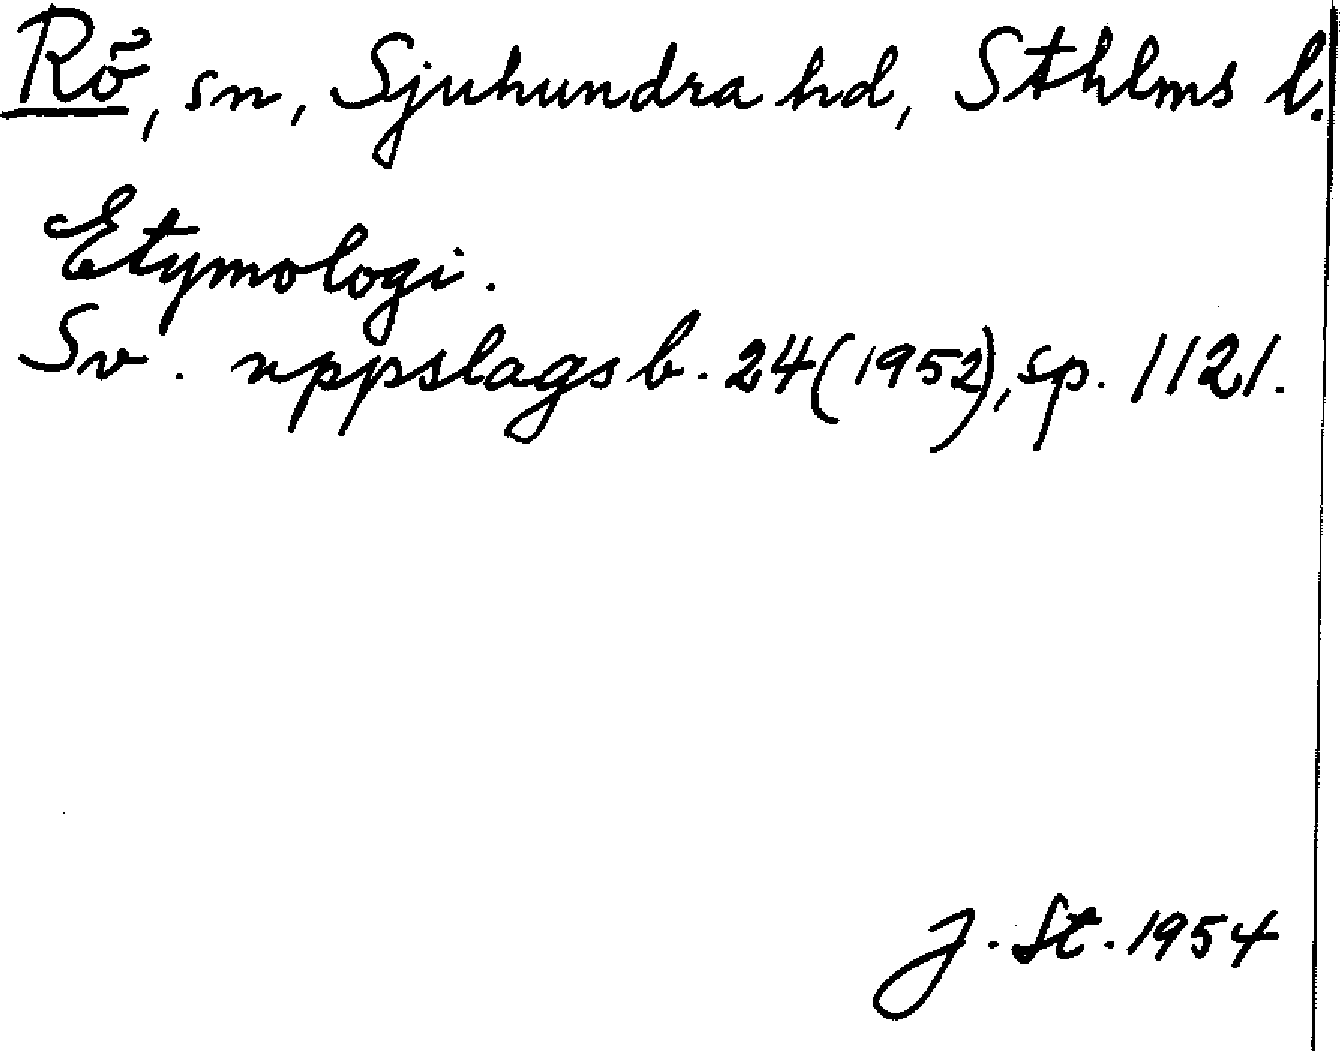 Rö, sn, Sjuhundra hd, Sthlms l.
Etymologi.
Sv. uppslagsb. 24 (1952), sp. 1121.
J. St. 1954